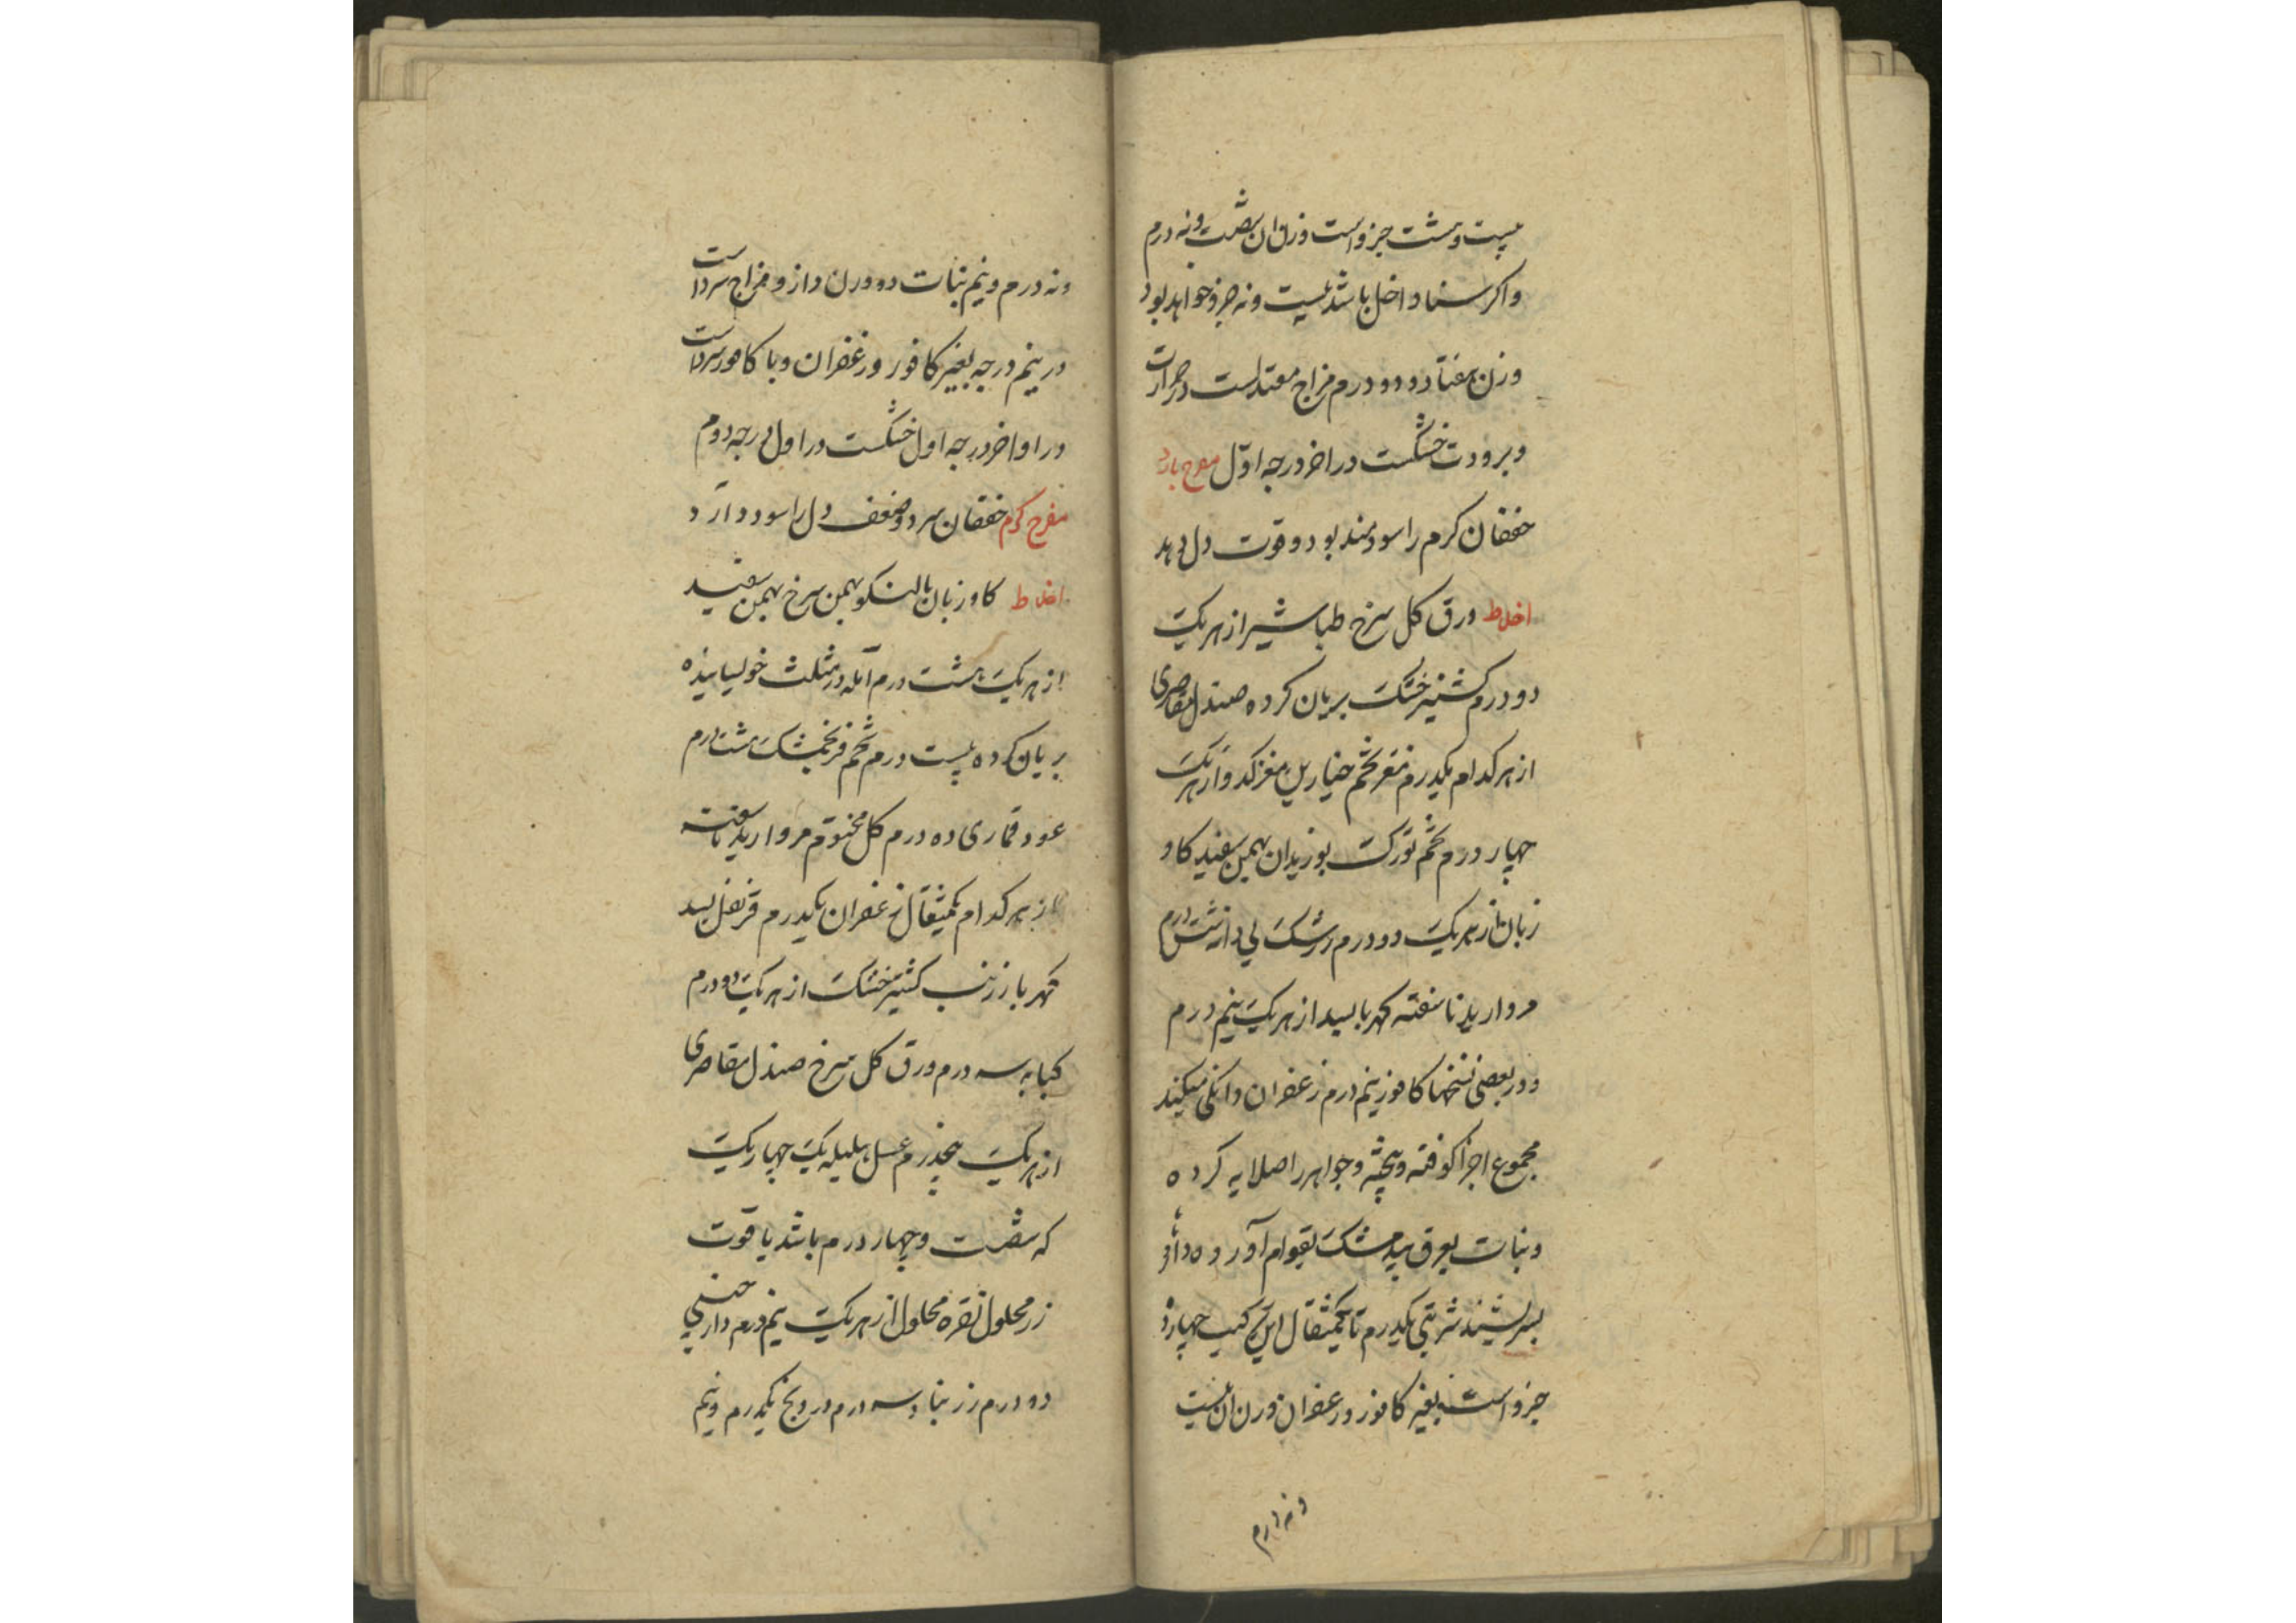 بیست و هشت جزو است وزن ان شصت و نه درم
و اکر سنا داخل باشد بیست و نه جزو خواهد بود
وزن هفتاد و دو درم مزاج معتدلست در حرارت
و برودت خشکست در اخر درجه اوّل مفرح بارد
خفقان کرم را سودمند بود و قوت دل بدهد
اخلاط ورق کل سرخ طباشیر از هر یک
دو درم کشنیز خشک بریان کرده صندل مقاصری
از هر کدام یکدرم مغز تخم خیارین مغز کدو از هر یک
چهار درم تخم تورک بوزیدان بهمن سفید کاو
زبان از هر یک دو درم زرشک بی دانه شش درم
مروارید ناسفته کهربا بسد از هر یک نیم درم
و در بعضی نسخها کافور نیم درم زعفران دانکی میکنند
مجموع اجزا کوفته و پخته و جواهر را صلایه کرده
و نبات بعرق بید مشک بقوام آورده داروا
بسرشند شربتی یکدرم تا یکمثقال این ترکیب چهارده
جزو است بغیر کافور و زعفران وزن ان بیست
و نه درم
و نه درم و نیم نبات دو وزن دارو مزاج سرد است
در نیم درجه بغیر کافور و زعفران و با کافور سرد است
در اواخر درجه اول خشکست در اول درجه دوم
مفرح کرم خفقان سرد و ضعف دل را سود دارد
اخلاط کاو زبان بالنکو بهمن سرخ بهمن سفید
از هر یک هشت درم آمله در مثلث خوسیانیده
بریان کرده بیست درم تخم فرنجمشک هشت درم
عود قماری ده درم کل مختوم مروارید ناسفته
از هر کدام یکمثقال زعفران یکدرم قرنفل بسد
کهربا زرنب کشنیز خشک از هر یک دو درم
کبابه سه درم ورق کل سرخ صندل مقاصری
از هر یک پنجدرم عسل هلیله یک چهار یک
که شصت و چهار درم باشد یاقوت
زر محلول نقره محلول از هر یک نیم درم دارچینی
دو درم زرنباد سه درم درونج یکدرم و نیم